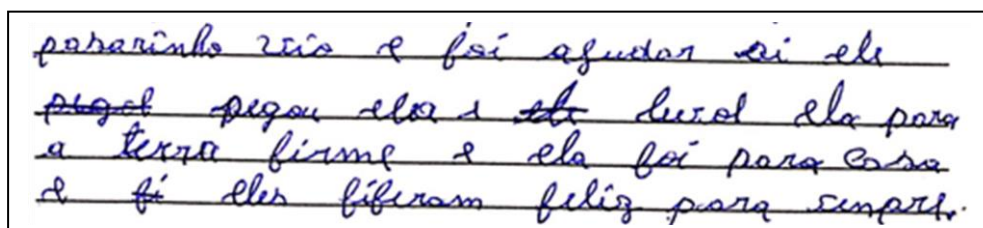 pasarinho vio e foi ajudar ai ele
pegol pegou ela e ele levol ela para
a terra firme e ela foi para casa
e fi eles fiferam feliz para senpre.